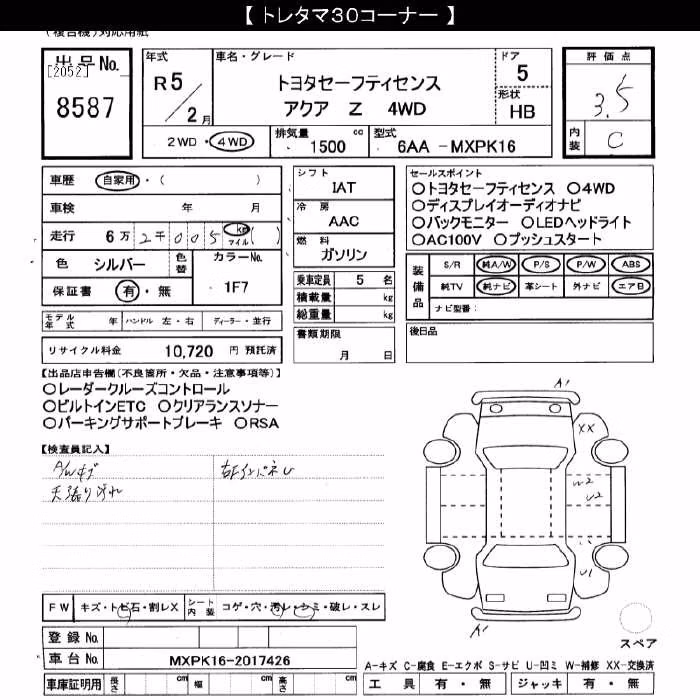 【 トレタマ30コーナー 】
(複合機)対応用紙
出品No.
[2052]
8587
年式
R 5 / 2 月
車名・グレード
トヨタセーフティセンス
アクア Z 4WD
ドア
5
形状
HB
評価点
3.5
内装 C
2WD・4WD
排気量 1500 cc
型式 6AA -MXPK16
車歴 自家用・( )
車検 年 月
走行 6万 2千005 km マイル ( )
色 シルバー 色替 カラーNo.
保証書 有・無 1F7
モデル年式 年 ハンドル 左・右 ディーラー・並行
リサイクル料金 10,720 円 預託済
シフト
IAT
冷房
AAC
燃料
ガソリン
乗車定員 5 名
積載量 kg
総重量 kg
書類期限
月 日
セールスポイント
○トヨタセーフティセンス ○4WD
○ディスプレイオーディオナビ
○バックモニター ○LEDヘッドライト
○AC100V ○プッシュスタート
装備品
S/R 純A/W P/S P/W ABS
純TV 純ナビ 革シート 外ナビ エアB
ナビ型番:
後日品
【出品店申告欄(不良箇所・欠品・注意事項等)】
○レーダークルーズコントロール
○ビルトインETC ○クリアランスソナー
○パーキングサポートブレーキ ○RSA
【検査員記入】
A/Wキズ
天張り汚れ
A1
XX
W2
U2
U1
A1
スペア
FW キズ・トビ石・割レX シート内装 コゲ・穴・汚レ・シミ・破レ・スレ
登録 No.
車台 No. MXPK16-2017426
車庫証明用 長さ cm 幅 cm 高さ cm
A-キズ C-腐食 E-エクボ S-サビ U-凹ミ W-補修 XX-交換済
工具 有・無 ジャッキ 有・無